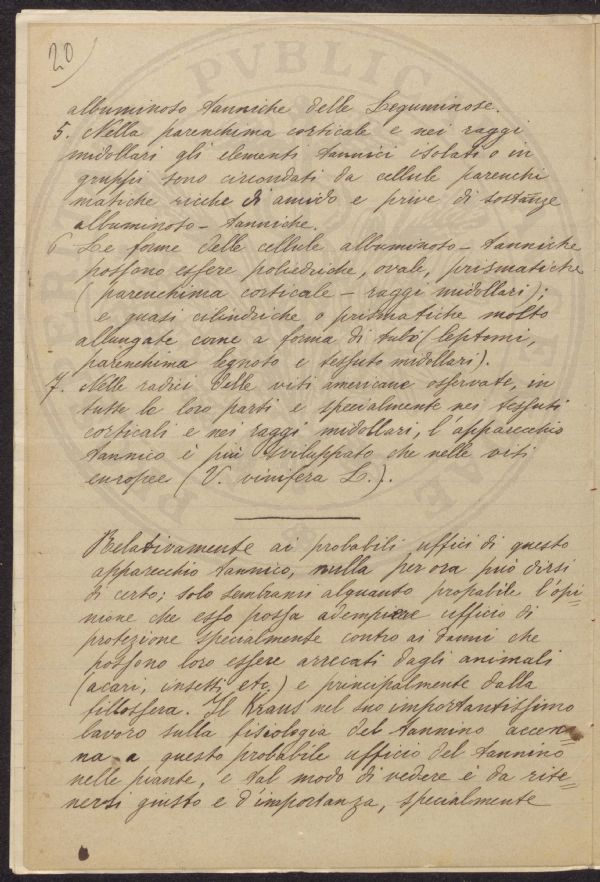 20)
albuminoso tanniche delle Leguminose.
5. Nella parenchima corticale e nei raggi
midollari gli elementi tannici isolati o in
gruppi sono circondati da cellule parenchi
matiche ricche di amido e prive di sostanze
albuminoso-tanniche.
6 Le forme delle cellule albuminoso-tanniche
possono essere poliedriche, ovale, prismatiche
(parenchima corticale - raggi midollari);
e quasi cilindriche o prismatiche molto
allungate come a forma di tubo (leptomi,
parenchima legnoso e tessuto midollari).
7. Nelle radici delle viti americane osservate, in
tutte le loro parti e specialmente nei tessuti
corticali e nei raggi midollari, l'apparecchio
tannico è più sviluppato che nelle viti
europee (V. vinifera L.).
Relativamente ai probabili uffici di questo
apparecchio tannico, nulla per ora può dirsi
di certo; solo sembrami alquanto propabile l'opi=
nione che esso possa adempiere ufficio di
protezione specialmente contro ai danni che
possono loro essere arrecati dagli animali
(acari, insetti, etc.) e principalmente dalla
fillossera. Il Kraus nel suo importantissimo
lavoro sulla fisiologia del tannino accen=
na a questo probabile ufficio del tannino
nelle piante, e tal modo di vedere è da rite=
nersi giusto e d'importanza, specialmente
PVBLIC